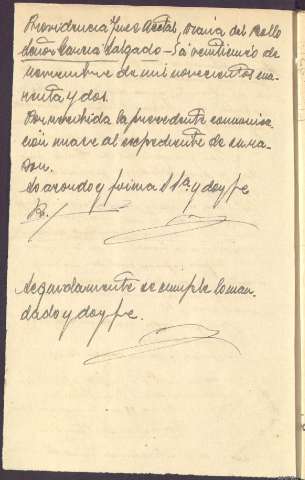 Providencia Juez Acctal,
Señor Garcia Salgado - Sa veintiuno de
noviembre de mil novecientos cua-
renta y dos.
Por recibida la precedente comunica-
ción unase al expediente de su ra-
zon.
Lo acordo y firma S Sª. y doy fe
Seguidamente se cumple lo man-
dado y doy fe.